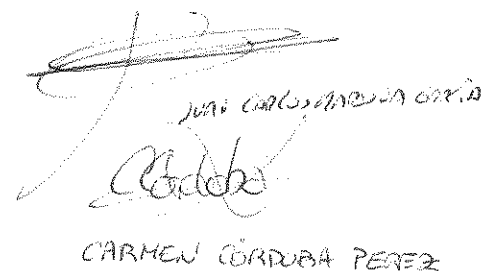 JUAN CARLOS GARCIA
Córdoba
CARMEN CÓRDOBA PEREZ